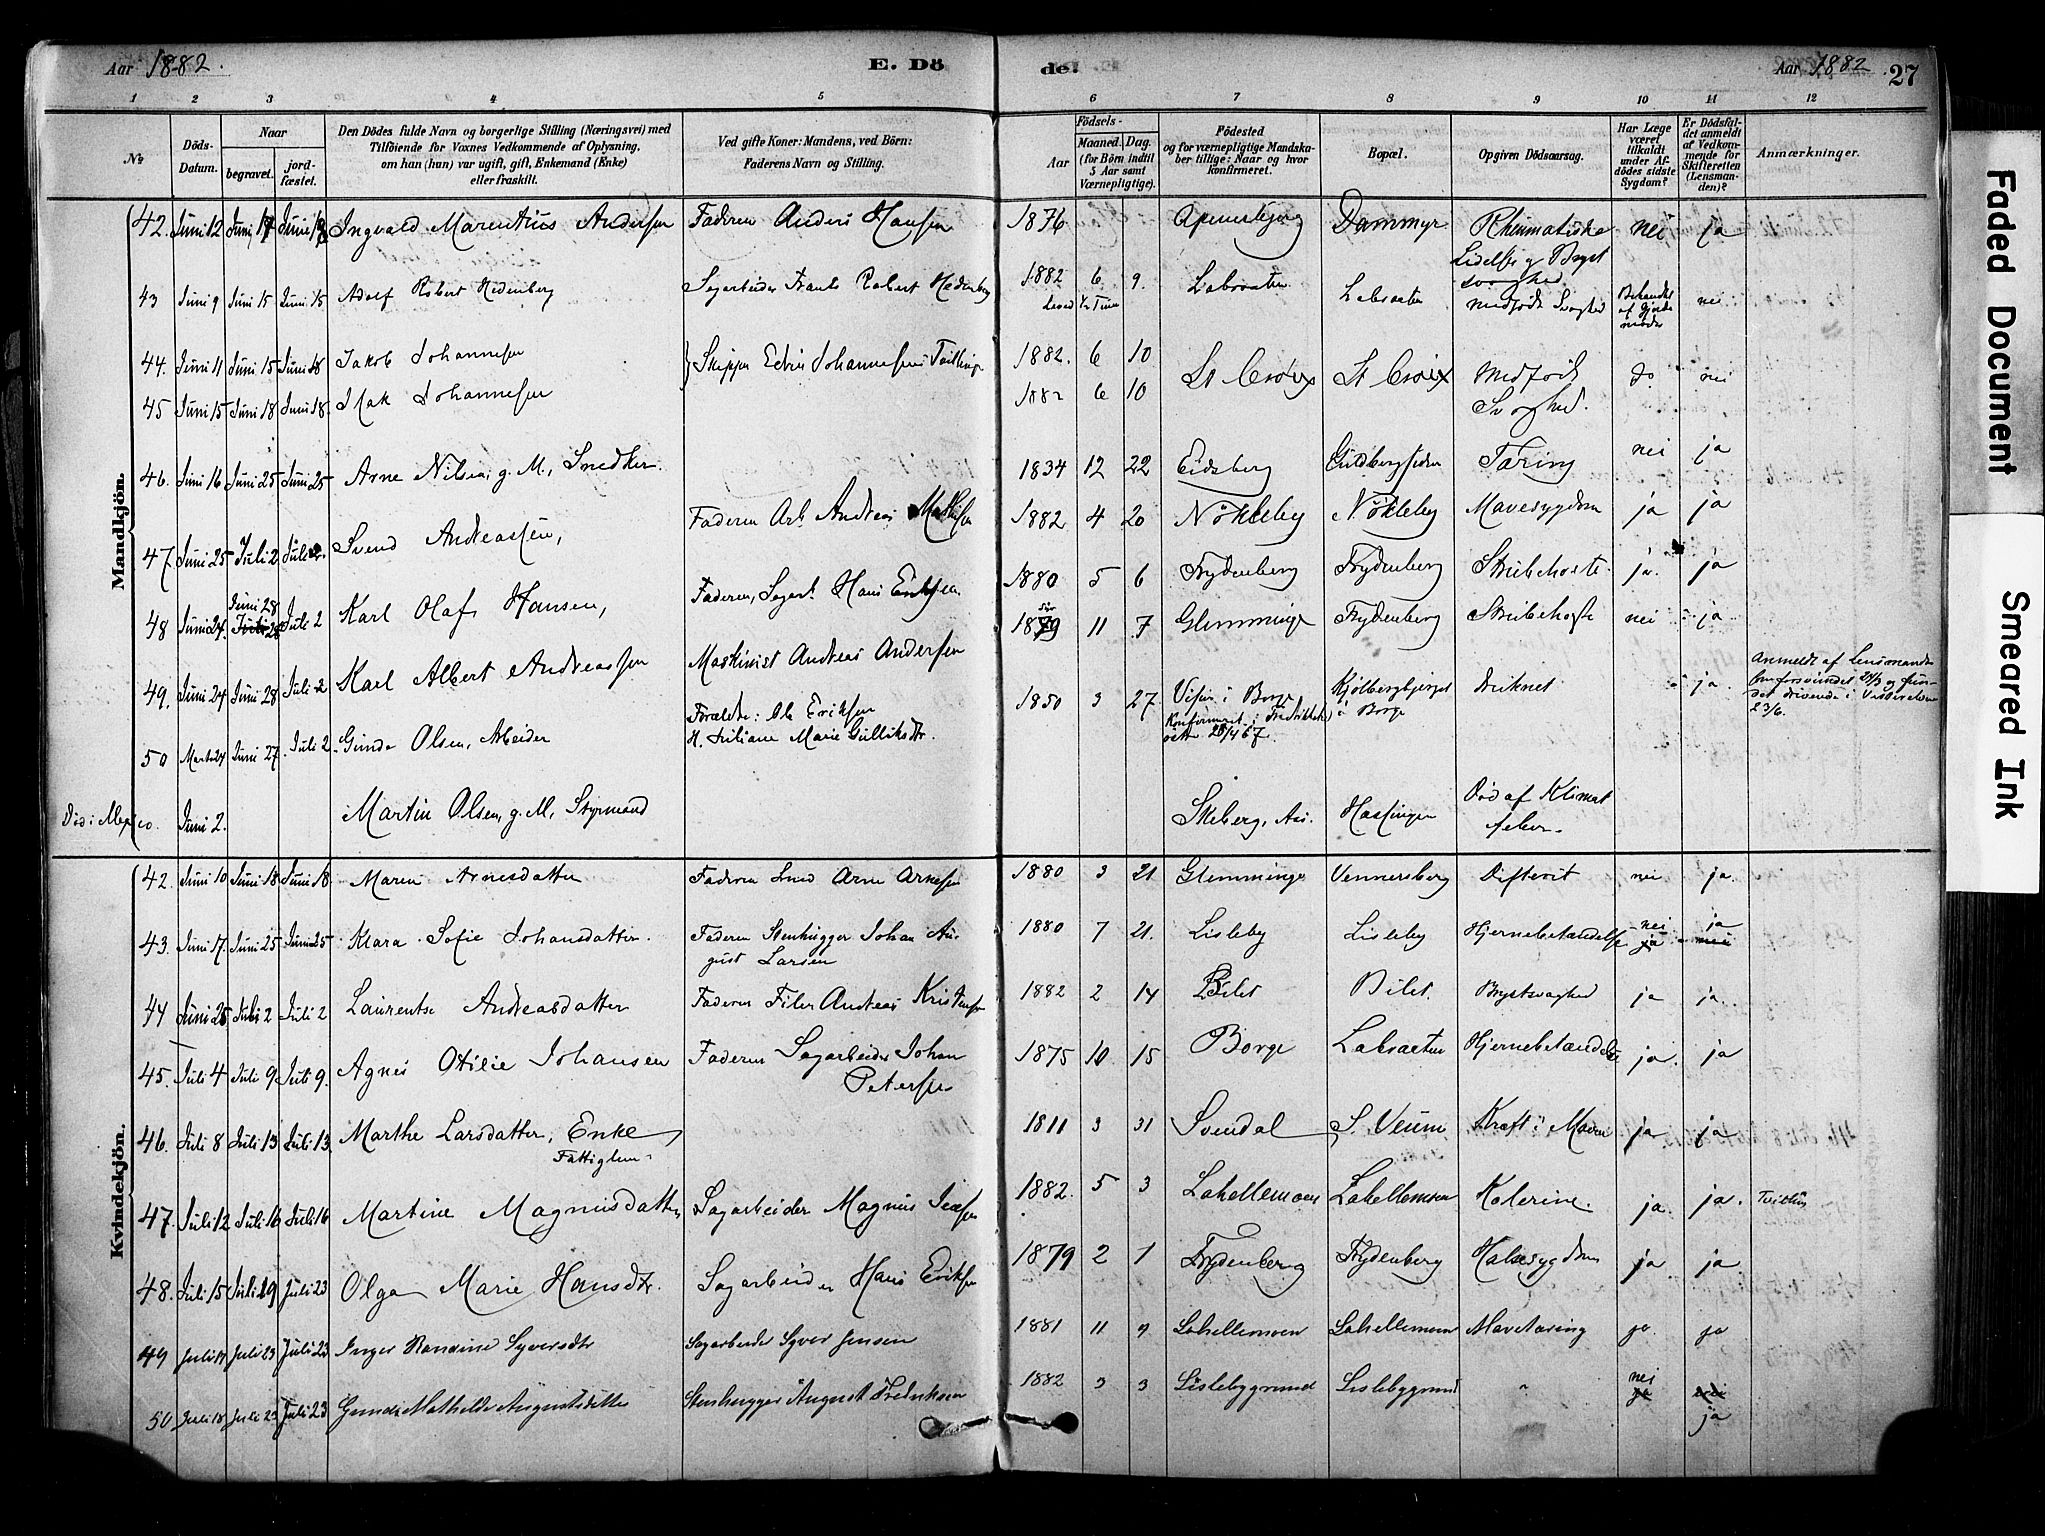 Aar 1882. E. Dö de. Aar 1882 27
1 2 3 4 5 6 7 8 9 10 11 12
№
Döds-Datum.
Naar
begravet.
jord-fæstet.
Den Dödes fulde Navn og borgerlige Stilling (Næringsvei) med
Tilföiende for Voxnes Vedkommende af Oplysning,
om han (hun) var ugift, gift, Enkemand (Enke)
eller fraskilt.
Ved gifte Koner: Mandens, ved Börn:
Faderens Navn og Stilling.
Födsels-
Aar
Maaned. Dag.
(for Börn indtil
5 Aar samt
Værnepligtige).
Födested
og for værnepligtige Mandska-
ber tillige: Naar og hvor
konfirmeret.
Bopæl.
Opgiven Dödsaarsag.
Har Læge
været
tilkaldt
under Af-
dödes sidste
Sygdom?
Er Dödsfal-
det anmeldt
af Vedkom-
mende for
Skifteretten
(Lensman-
den)?
Anmærkninger.
Mandkjön.
42. Juni 12 Juni 17 Juni 18 Ingvald Marentius Andersen Faderen Anders Hansen 1876 Dammyr Rheumatiske nei ja
Lidelse og Bryst
svaghed
43 Juni 9 Juni 15 Juni 15 Adolf Robert Hedenberg Sagarbeider Frants Robert Hedenberg 1882 6 9. Labraaten Labraaten medfödt Svaghed Behandlet af Gjordemoder nei
leved ½ Time
44. Juni 11 Juni 15 Juni 18 Jakob Johannesen Skipper Edvin Johannesens Tvillinge 1882. 6 10 St Croix St Croix Medfödt do nei
45 Juni 15 Juni 18 Juni 18. Isak Johannesen 1882 6 10 Svaghed.
46. Juni 16 Juni 25 Juni 25 Arne Nilsen, g. M., Snedker. 1834 12 22 Eidsberg Tæring nei ja
47 Juni 25 Juli 2 Juli 2. Svend Andreassen, Faderen Arb. Andreas Mathisen 1882 4 20 Nökleby Nökleby Mavesygdom ja ja
48 Juni 24. Juni 28 Juli 2 Karl Olaf Hansen, Faderen, Sagarb. Hans Eriksen 1880 5 6 Frydenberg Frydenberg Strubehoste. ja. ja
49. Juni 24 Juni 28 Juli 2 Karl Albert Andreassen Maskinist Andreas Andersen 1879 11 7 Glemminge Frydenberg Strubehoste nei ja
50 Marts 24 Juni 27 Juli 2 Gunder Olsen, Arbeider Forældre: Ole Eriksen 1850 3 27 i Borge Kjölbergbjerget i Borge druknet ja.
H. Juliane Marie Gulliksdtr.
Konfirmeret i Fredrikstad
Anmeldt af Lensmanden
23/6.
Död i Mexico. Juni 2. Martin Olsen, g. M., Styrmand Skeberg, Aas. Hassingen Död af Klimat
feber.
Kvindekjön.
42. Juni 10 Juni 18 Juni 18 Maren Arnesdatter Faderen Smed Arne Arnesen 1880 3 21 Glemminge Vennersberg Difterit nei ja
43. Juni 17. Juni 25 Juni 25 Klara Sofie Johansdatter. Faderen Stenhugger Johan Au- 1880 7 21. Lisleby Lisleby Hjernebetændelse nei ja
gust Larsen ja nei
44 Juni 25 Juli 2 Juli 2 Laurentse Andreasdatter Faderen Filer Andreas Kristensen 1882 2 14 Bilet Bilet. Brystsvaghed ja ja
45. Juli 4 Juli 9 Juli 9. Agnes Otilie Johansen Faderen Sagarbeider Johan 1875 10 15 Borge Labraaten Hjernebetændelse ja. ja
Petersen
46. Juli 8 Juli 13 Juli 13 Marthe Larsdatter, Enke, 1811 3 31 Svendal S. Veum Kræft i Maven ja ja
Fattiglem
47. Juli 12 Juli 16 Juli 16 Martine Magnusdatter Sagarbeider Magnus 1882. 5 3 Lahellemoen Lahellemoen Kolerine. ja ja. Tvilling
48. Juli 15 Juli 19 Juli 23 Olga Marie Hansdtr. Sagarbeider Hans Eriksen 1879 2 1 Frydenberg Frydenberg Halssygdom ja ja
49 Juli 17 Juli 23 Juli 23 Inger Randine Syversdtr Sagarbeider Syver Jensen 1881 11 9 Lahellemoen Lahellemoen Mavetæring ja ja
50 Juli 18 Juli 23 Juli 23 Gunda Mathilde Augustsdatter Stenhugger August Fredriksen 1882 3 3 Lislebygrund Lislebygrund " nei ja nei
ja
Faded Document
Smeared Ink